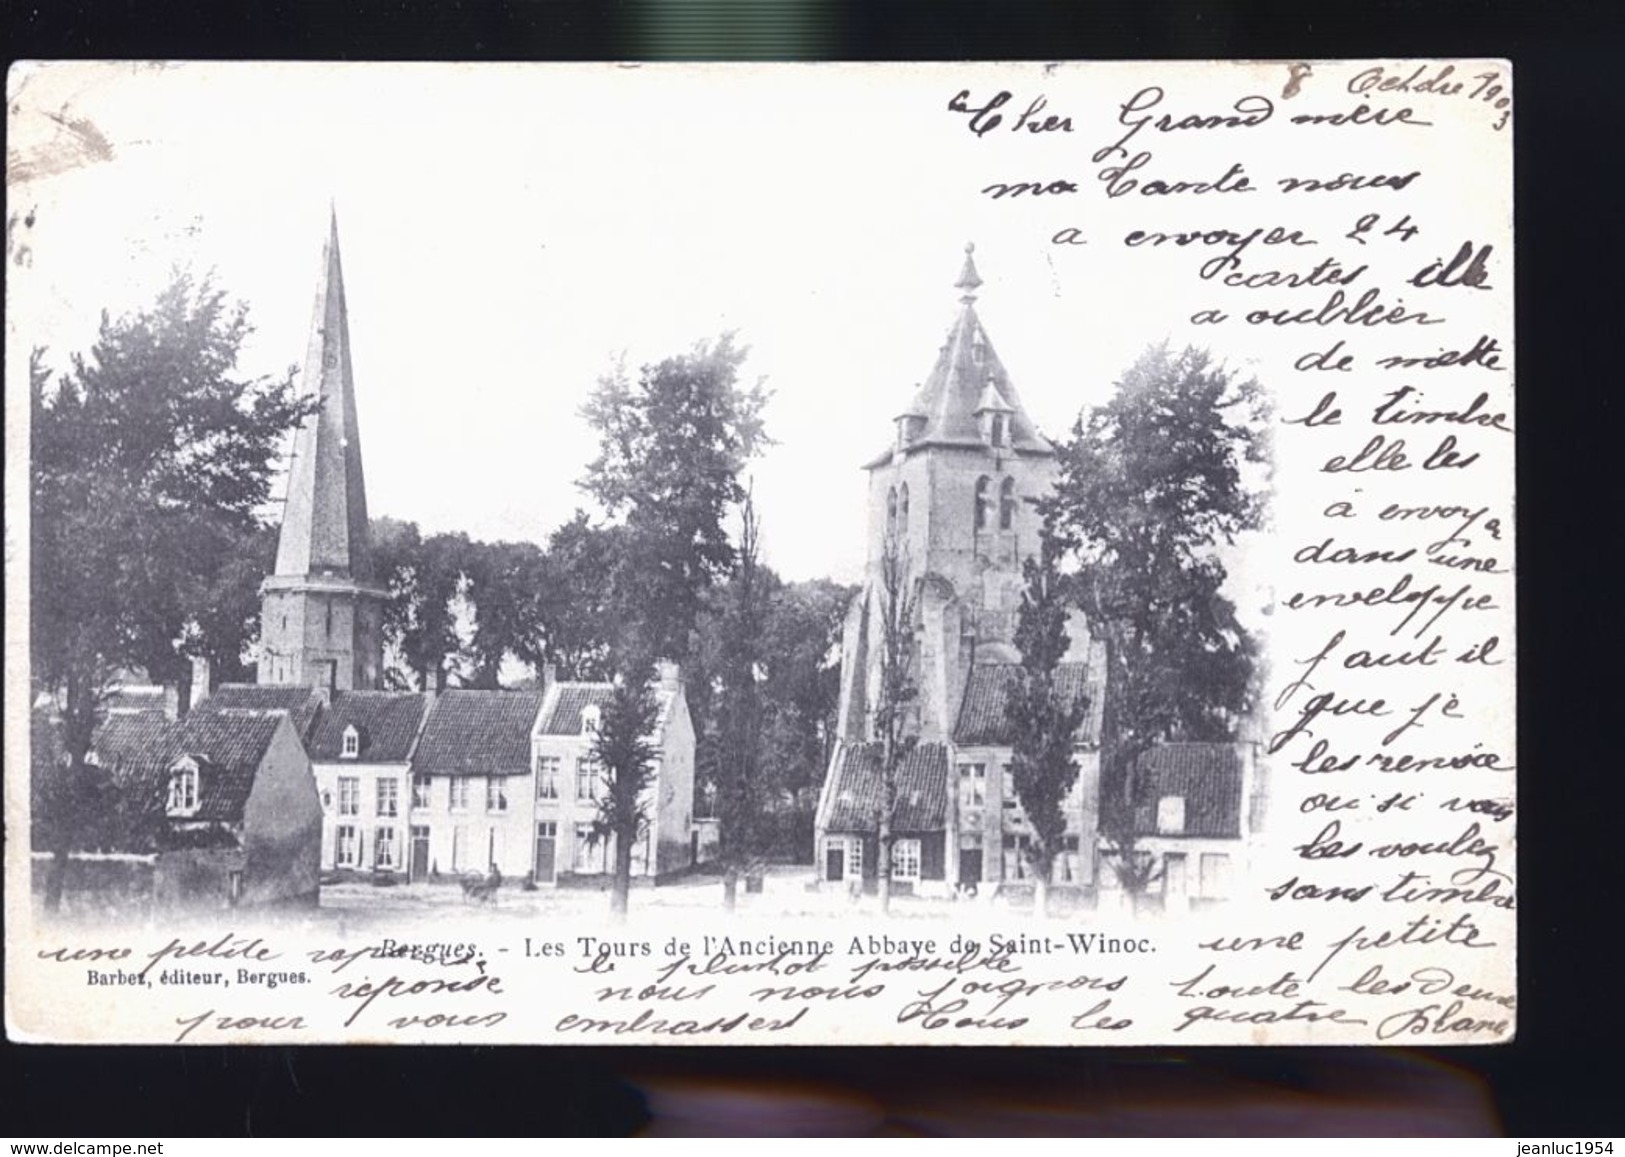 8 Octobre 1903
Cher Grand mère
ma Tante nous
a envoyer 24
cartes ille
a oublier
de mette
le timbre
elle les
à envoyer
dans une
enveloppe
faut il
que je
les renvoie
ou si vous
les voulez
sans timbre
une petite
Bergues. - Les Tours de l'Ancienne Abbaye de Saint-Winoc.
une petite
le plustot possible
Barbez, éditeur, Bergues.
réponse nous nous joignons toute les Deux
pour vous embrasser Tous les quatre
www.delcampe.net
jeanluc1954